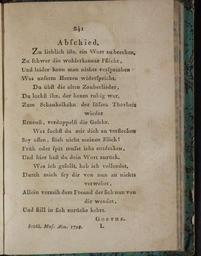 241
Abschied.
Zu lieblich ists, ein Wort zu brechen,
Zu schwer die wohlerkannte Pflicht,
Und leider kann man nichts versprechen
Was unserm Herzen widerspricht.
Du übst die alten Zauberlieder,
Du lockst ihn, der kaum ruhig war,
Zum Schaukelkahn der süssen Thorheit
wieder
Erneust, verdoppelst die Gefahr.
Was suchst du mir dich zu verstecken
Sey offen, flieh nicht meinem Blick!
Früh oder spät musst ichs entdecken,
Und hier hast du dein Wort zurück.
Was ich gesollt, hab ich vollendet,
Durch mich sey dir von nun an nichts
verwehrt,
Allein verzeih dem Freund der sich nun von
dir wendet,
Und still in sich zurücke kehrt.
GOETHE.
Schill. Mus. Alm. 1798. L